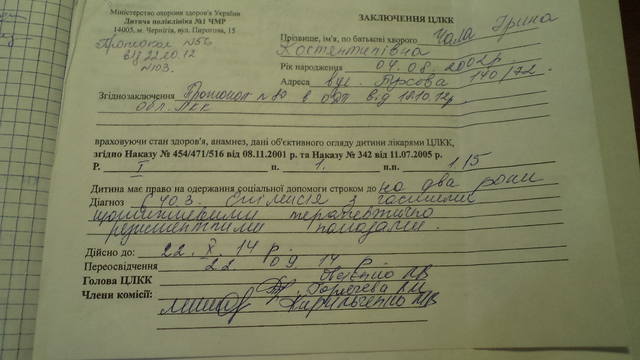 Міністерство охорони здоров'я України
Дитяча поліклініка №1 ЧМР
14005, м. Чернігів, вул. Пирогова, 15
Протокол №56
від 22.10.12
№103.
ЗАКЛЮЧЕННЯ ЦЛКК
Прізвище, ім'я, по батькові хворого Чала Ірина
Костянтинівна
Рік народження 04.08.2002р.
Адреса вул. 140/72
Згіднозаключення Протокол №80 в від 18.10.12р
обл. ЛКК
враховуючи стан здоров'я, анамнез, дані об'єктивного огляду дитини лікарями ЦЛКК,
згідно Наказу № 454/471/516 від 08.11.2001 р. та Наказу № 342 від 11.07.2005 р.
Р. I п. 1. п.п. 1.15
Дитина має право на одержання соціальної допомоги строком до на два роки
Діагноз G 40.3. Епілепсія з частими
щотижневими терапевтично
резистентними нападами.
Дійсно до: 22. X. 14 р.
Переосвідчення 22 09 14 р
Голова ЦЛКК
Члени комісії: Кирильченко